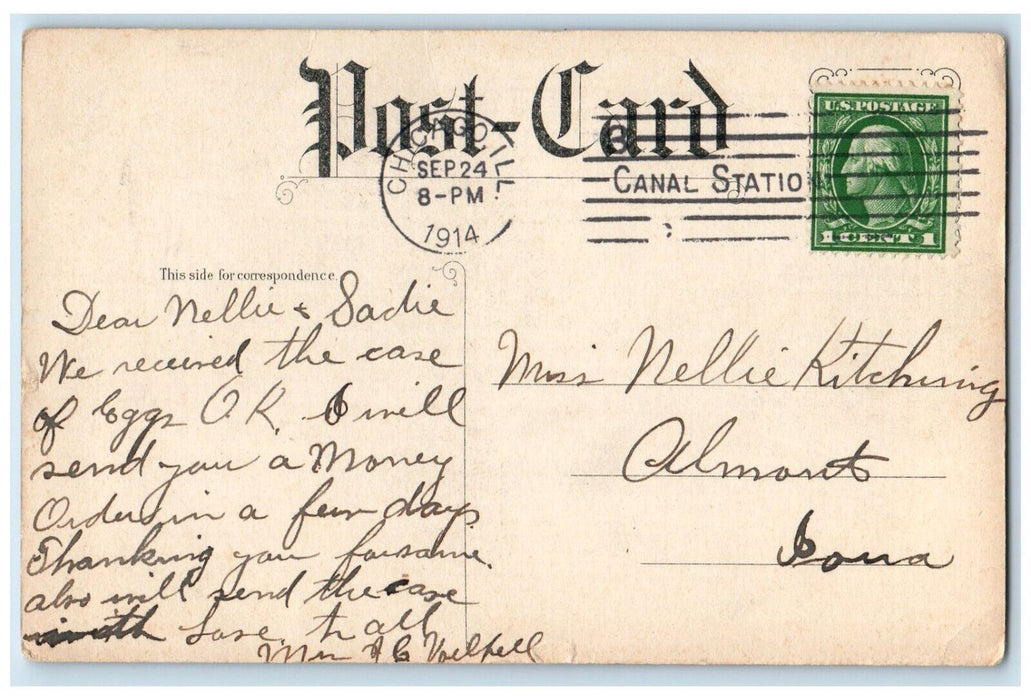 Post-Card
CHICAGO, ILL.
SEP 24
8-PM
1914
CANAL STATIO
U.S. POSTAGE
1 CENT 1
This side for correspondence.
Dear Nellie & Sadie
We received the case
of Eggs O.K. I will
send you a Money
Order in a few days
Thanking you for same
also will send the case
with Love to all
Mrs
Miss Nellie Kitching
Almont
Iowa